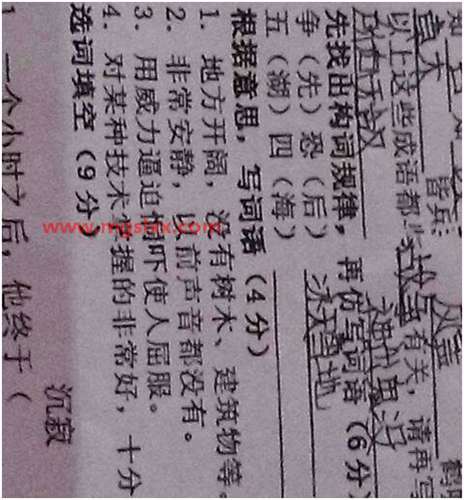 皆兵;
以上这些成语都与战争有关,请再写
神出鬼没
先找出构词规律,再仿写词语(6分
争(先)恐(后) 冰天雪地
五(湖)四(海)
根据意思,写词语(4分)
1. 地方开阔,没有树木、建筑物等。
2. 非常安静,以前声音都没有。
3. 用威力逼迫恫吓使人屈服。
4. 对某种技术掌握的非常好,十分
选词填空(9分)
沉寂
一个小时之后,他终于(